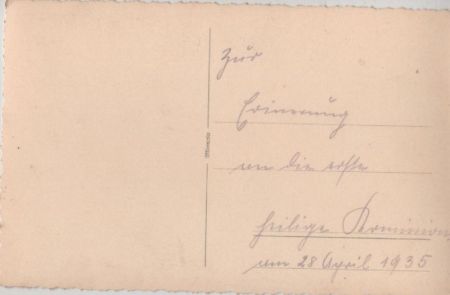 Zur
Erinnerung
an die erste
heilige Kominion
am 28 April 1935